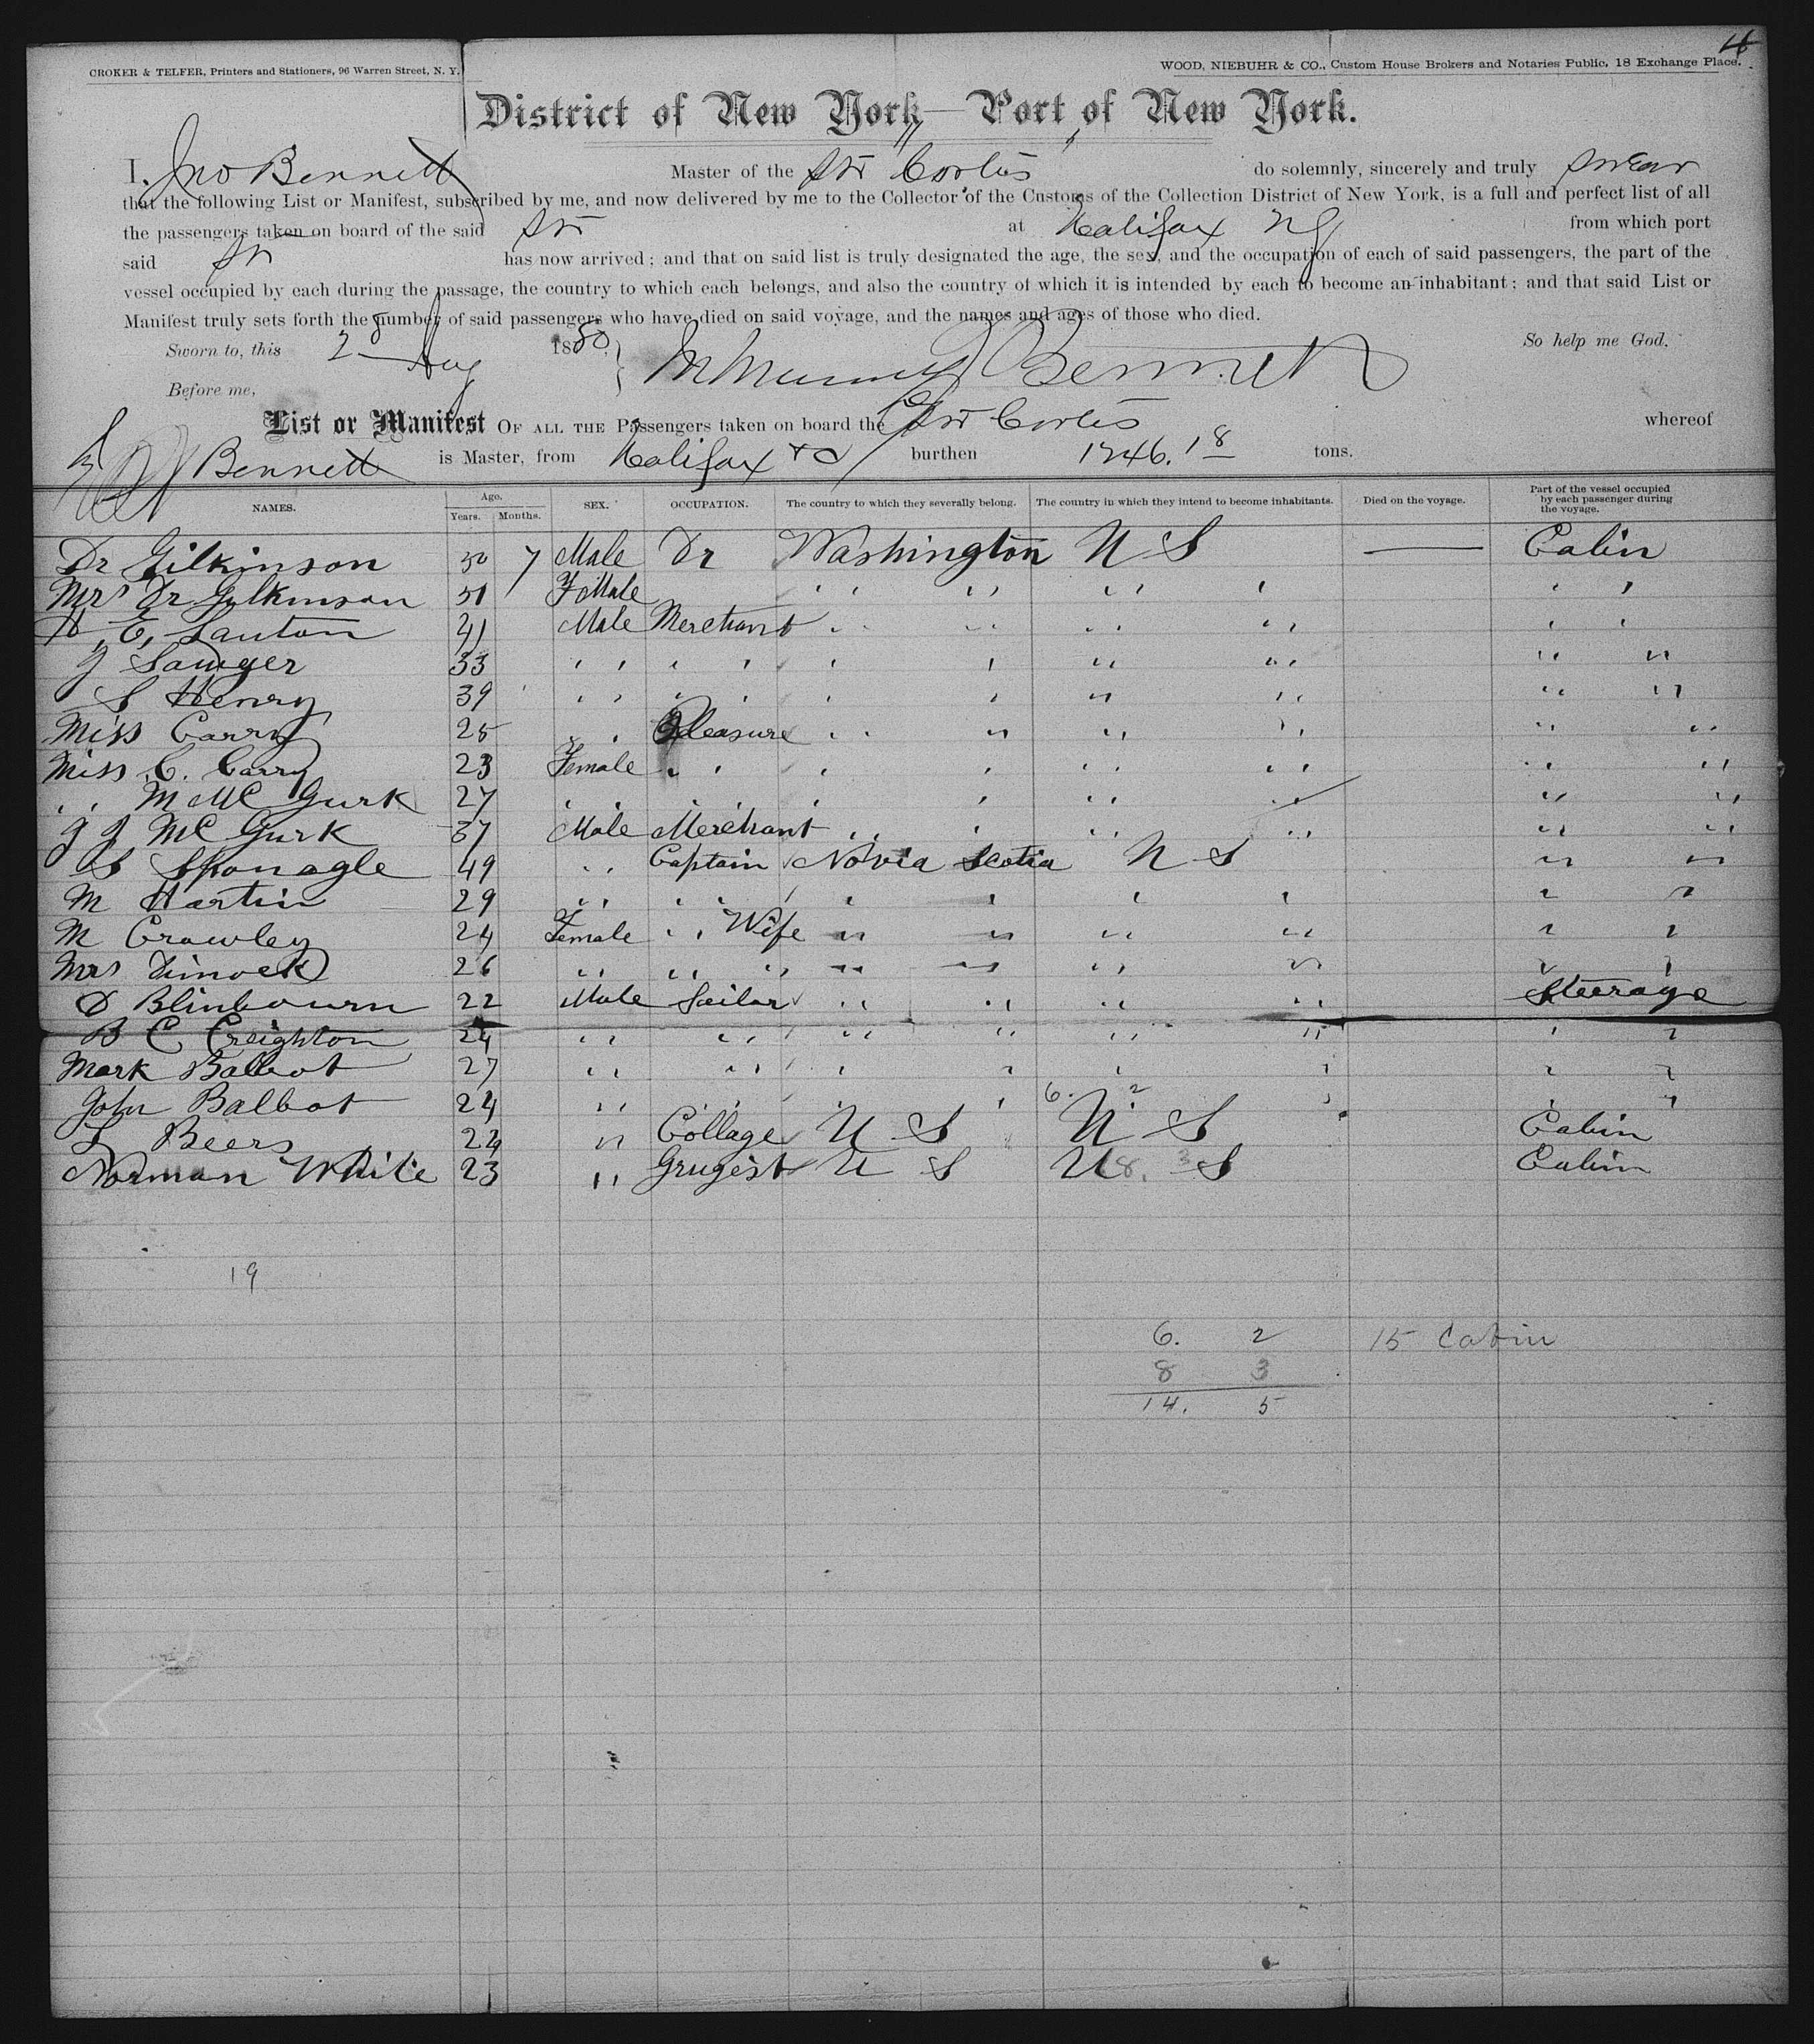 CROKER & TELFER, Printers and Stationers, 96 Warren Street, N. Y.
WOOD, NIEBUHR & CO., Custom House Brokers and Notaries Public, 18 Exchange Place.
District of New York—Port of New York.
I, Jno Bennett Master of the Str Cortes do solemnly, sincerely and truly swear
that the following List or Manifest, subscribed by me, and now delivered by me to the Collector of the Customs of the Collection District of New York, is a full and perfect list of all
the passengers taken on board of the said Str at Halifax from which port
said Str has now arrived; and that on said list is truly designated the age, the sex, and the occupation of each of said passengers, the part of the
vessel occupied by each during the passage, the country to which each belongs, and also the country of which it is intended by each to become an inhabitant; and that said List or
Manifest truly sets forth the number of said passengers who have died on said voyage, and the names and ages of those who died.
Sworn to, this Aug 1880. Bennett So help me God.
Before me,
List or Manifest OF ALL THE Passengers taken on board the Str Cortes whereof
Bennett is Master, from Halifax burthen tons.
NAMES. Age. Years. Months. SEX. OCCUPATION. The country to which they severally belong. The country in which they intend to become inhabitants. Died on the voyage. Part of the vessel occupied by each passenger during the voyage.
Dr Gilkinson 50 7 Male Dr Washington U S — Cabin
Mrs Dr Gilkinson 51 Female " " " " " "
E, Lauton 41 Male Merchant " " " " " "
J Sawyer 33 " " " " " " " " " "
S Henry 39 " " " " " " " " " "
Miss Carry 25 " " Pleasure " " " " " "
Miss C. Carry 23 Female " " " " " " " "
" M Mc Gurk 27 " " " " " " " " " "
J J Mc Gurk 37 Male Merchant " " " " " "
S Sponagle 49 " Captain Novia Scotia N S " "
M Hartin 29 " " " " " " " " "
M Crawley 24 Female " Wife " " " " " "
Mrs Dimock 26 " " " " " " " " "
D Blinbourn 22 Male Sailor " " " " Steerage
B C Creighton 24 " " " " " " " "
Mark Balbot 27 " " " " " " " "
John Balbot 24 " " " " 6. 2 " " "
L Beers 22 " Collage U S U S Cabin
Norman White 23 " Grugist U S U 8. 3 S Cabin
19
6. 2 15 Cabin
8 3
14. 5